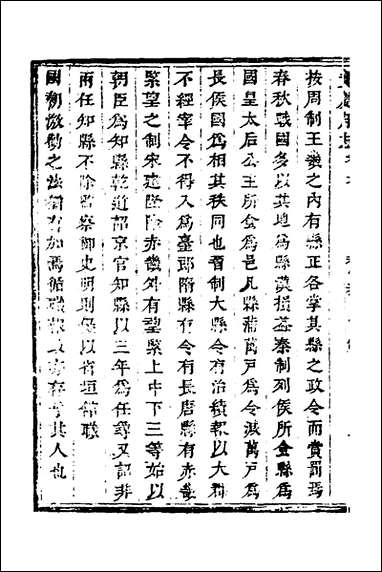 按周制王畿之內有縣正各掌其縣之政令而賞罰焉
春秋戰國多以其地為縣漢損益秦制列侯所食縣為
國皇太后公主所食為邑凡縣滿萬戶為令減萬戶為
長侯國為相其秩同也晉制大縣令有治績報以大郡
不經宰令不得入為臺郎隋縣有令有長唐縣有赤畿
緊望之制宋建隆除赤畿外有望緊上中下三等始以
朝臣為知縣乾道詔京官知縣以三年為任尋又詔非
兩任知縣不除監察御史明則
國初激勸之法